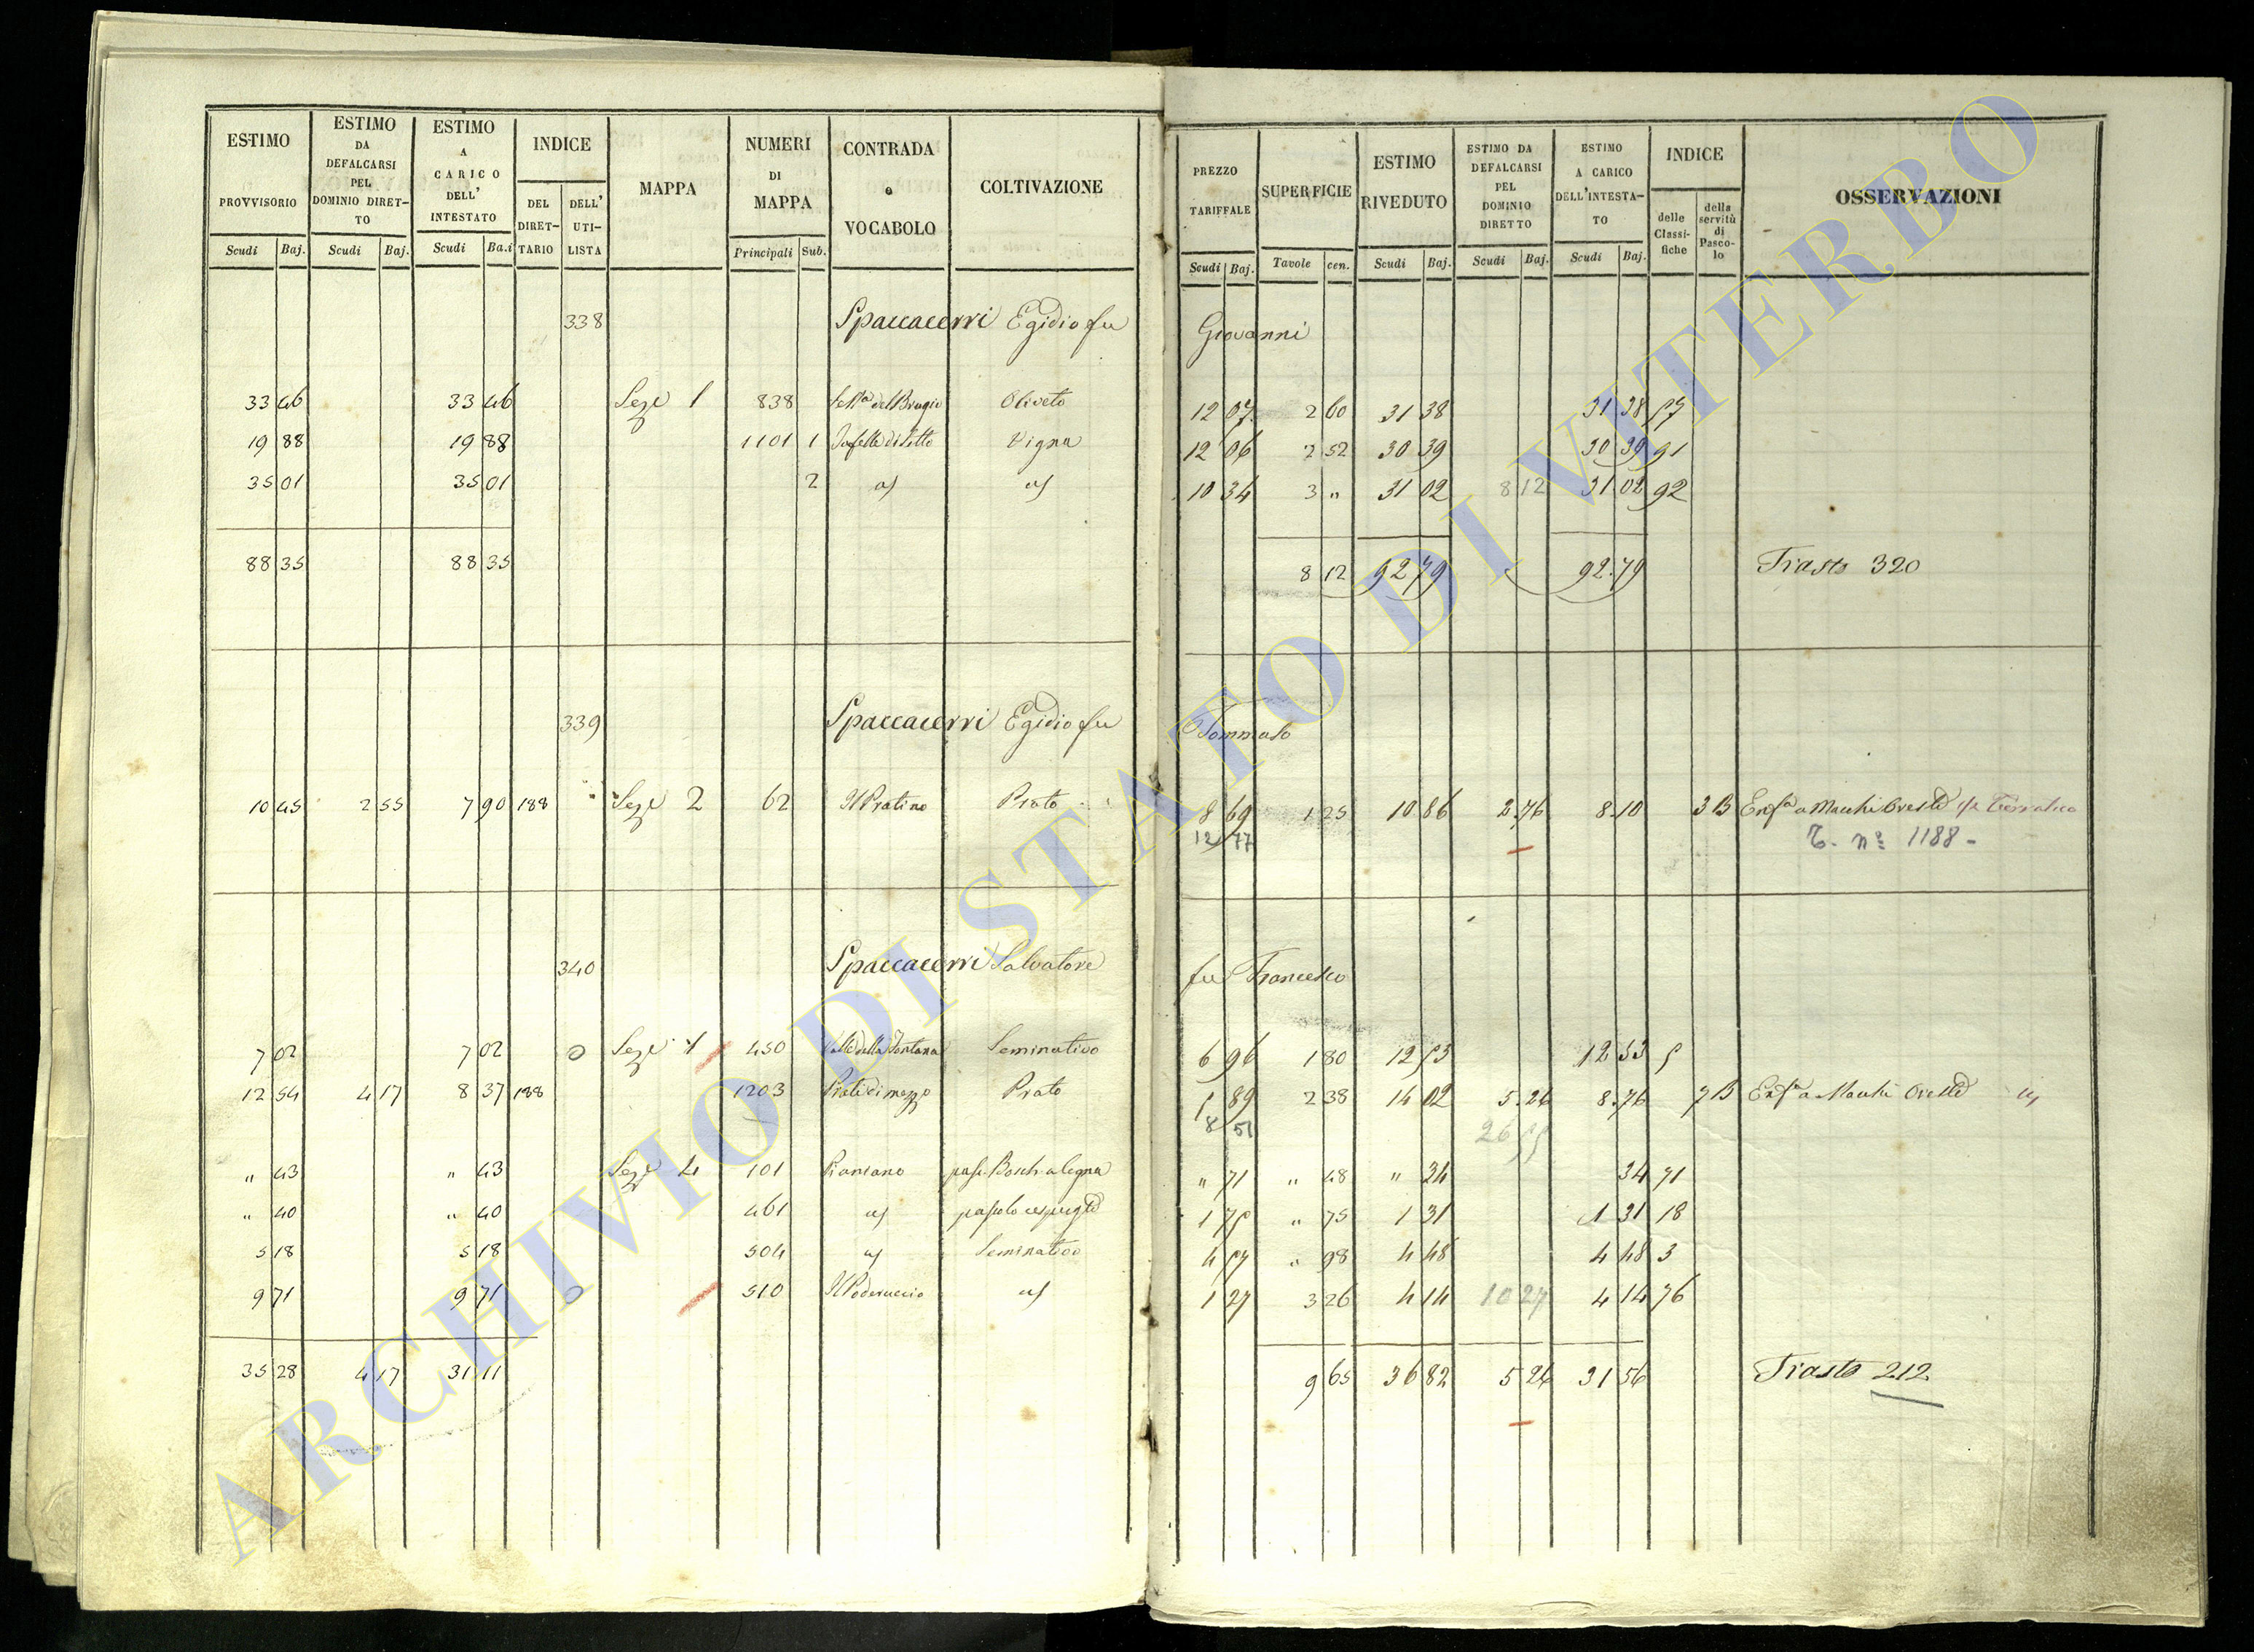 ESTIMO PROVVISORIO
ESTIMO DA DEFALCARSI PEL DOMINIO DIRET-TO
ESTIMO A CARICO DELL' INTESTATO
INDICE
DEL DIRET-TARIO
DELL' UTI-LISTA
MAPPA
NUMERI DI MAPPA
CONTRADA e VOCABOLO
COLTIVAZIONE
PREZZO TARIFFALE
SUPERFICIE
ESTIMO RIVEDUTO
ESTIMO DA DEFALCARSI PEL DOMINIO DIRETTO
ESTIMO A CARICO DELL'INTESTA-TO
INDICE
delle Classi-fiche
della servitù di Pasco-lo
OSSERVAZIONI
Scudi Baj. Scudi Baj. Scudi Ba.i Principali Sub. Scudi Baj. Tavole cen. Scudi Baj. Scudi Baj. Scudi Baj.
338 Spaccacerri Egidio fu Giovanni
33 46 33 46 Seze 1 838 del Brugio Oliveto 12 07 2 60 31 38 31 38 57
19 88 19 88 1101 1 di sotto Vigna 12 06 2 52 30 39 30 39 91
35 01 35 01 2 10 34 3 " 31 02 8 12 31 02 92
88 35 88 35 8 12 92 79 92.79 Trasto 320
339 Spaccacerri Egidio fu Tommaso
10 45 2 55 7 90 188 Seze 2 62 Il Pratino Prato 8 69 1 25 10 86 2.76 8.10 3 B Enfa a Macchi Oreste
12 77 T. nº 1188 -
340 Spaccacerri Salvatore fu Francesco
7 02 7 02 0 Seze 1 450 Valle della Fontana Seminativo 6 96 1 80 12 53 12 53 5
12 54 4 17 8 37 188 1203 Prati di mezzo Prato 5 89 2 38 14 02 5.26 8.76 7 B Enfa a Macchi Oreste
8 51 26 55
" 43 " 43 Seze 4 101 Pianzano " 71 " 48 " 34 34 71
" 40 " 40 461 pascolo cespugto 1 75 " 75 1 31 1 31 18
5 18 5 18 504 Seminativo 4 57 " 98 4 48 4 48 3
9 71 9 71 0 510 Il Poderuccio 1 27 3 26 4 14 10 27 4 14 76
35 28 4 17 31 11 9 65 36 82 5 26 31 56 Trasto 212
ARCHIVIO DI STATO DI VITERBO